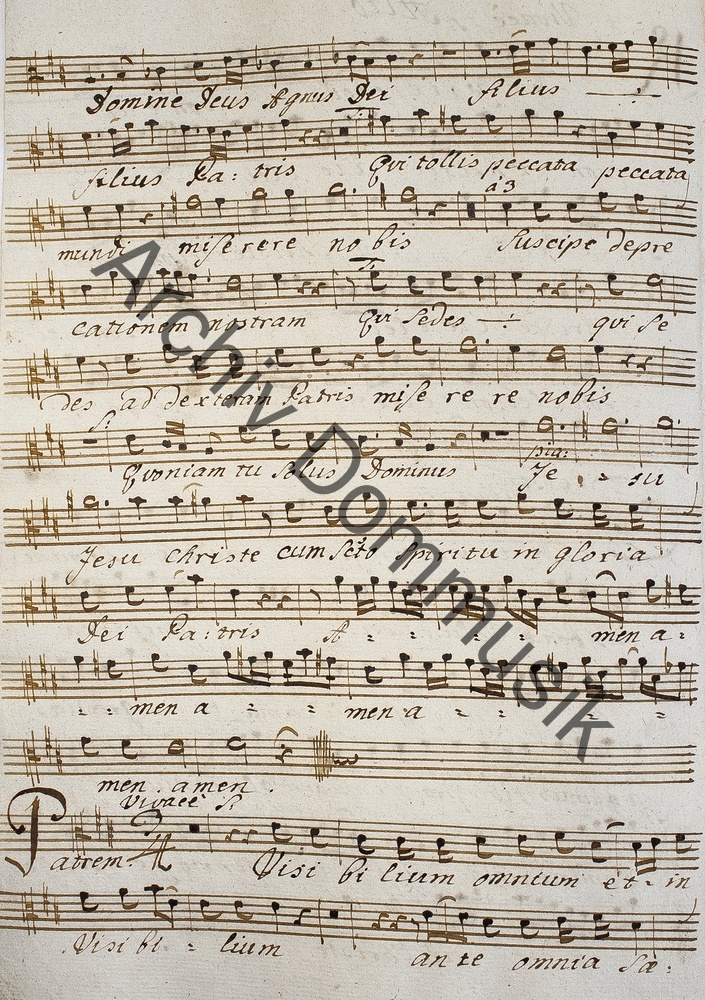 Domine Deus Agnus Dei filius
filius Pa: tris Qui tollis peccata peccata
à3
mundi miserere nobis Suscipe depre
cationem nostram Qui sedes qui se
des ad dexteram Patris mise re re nobis
S:
Quoniam tu solus Dominus Je su
pia:
Jesu christe cum Scto spiritu in gloria
Dei Pa: tris A men a:
men a men a
men. amen.
Vivace S:
Patrem. 4 Visi bi lium omnium et in
Visi bi lium an te omnia sæ:
Archiv Dommusik